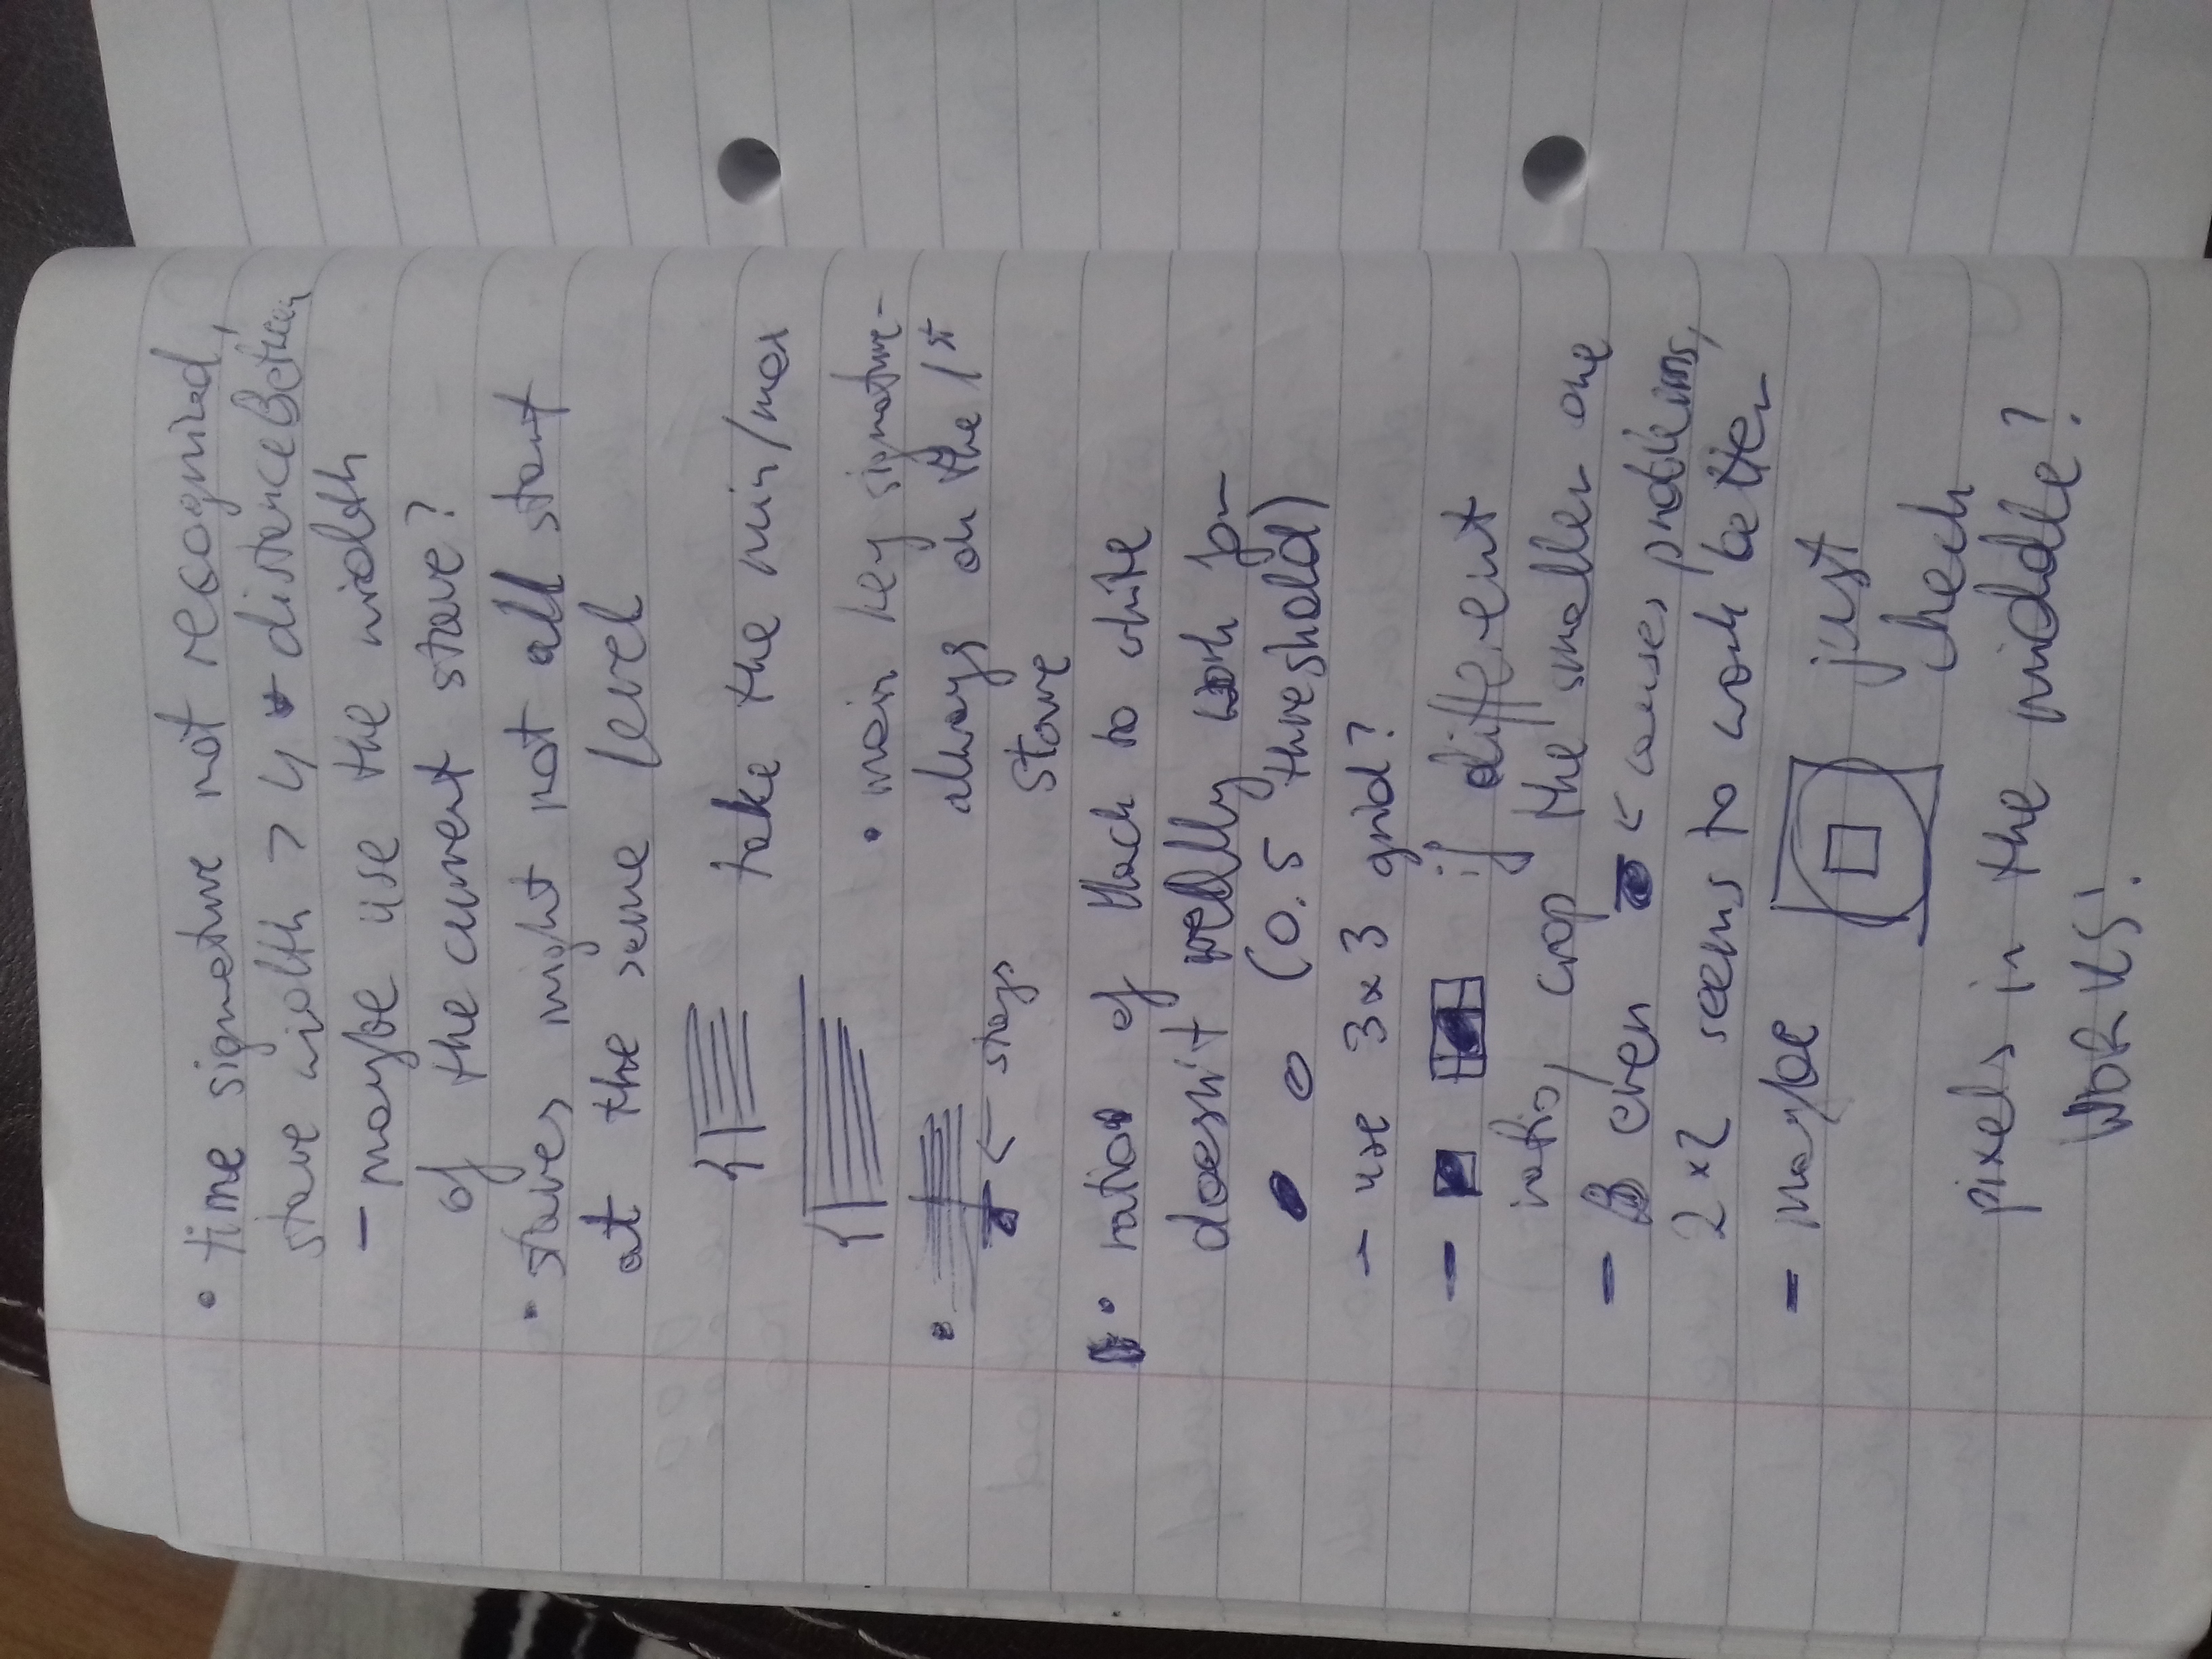 • time signature not recognized,
stave width > 4 * distanceBetween
- maybe use the width
of the current stave?
• staves might not all start
at the same level
take the min/max
• main key signature -
always on the 1st
stave
• ← stays
• ratio of black to white
doesn't really work for
(0.5 threshold)
- use 3x3 grid?
- if different
ratio, crop the smaller one
- even ← causes problems,
2x2 seems to work better
- maybe just
check
pixels in the middle?
WORKS!